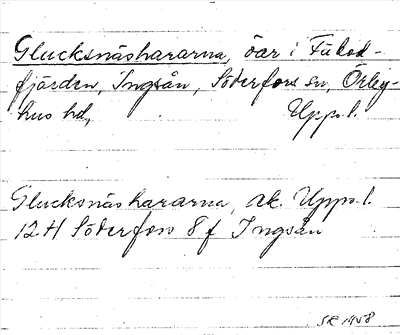 Glucksnäshararna, öar i Fukod-
fjärden, Ingsån, Söderfors sn, Örby-
hus hd, Upps. l.
Glucksnäshararna, ak. Upps. l.
12H Söderfors 8f Ingsån
SR 1958